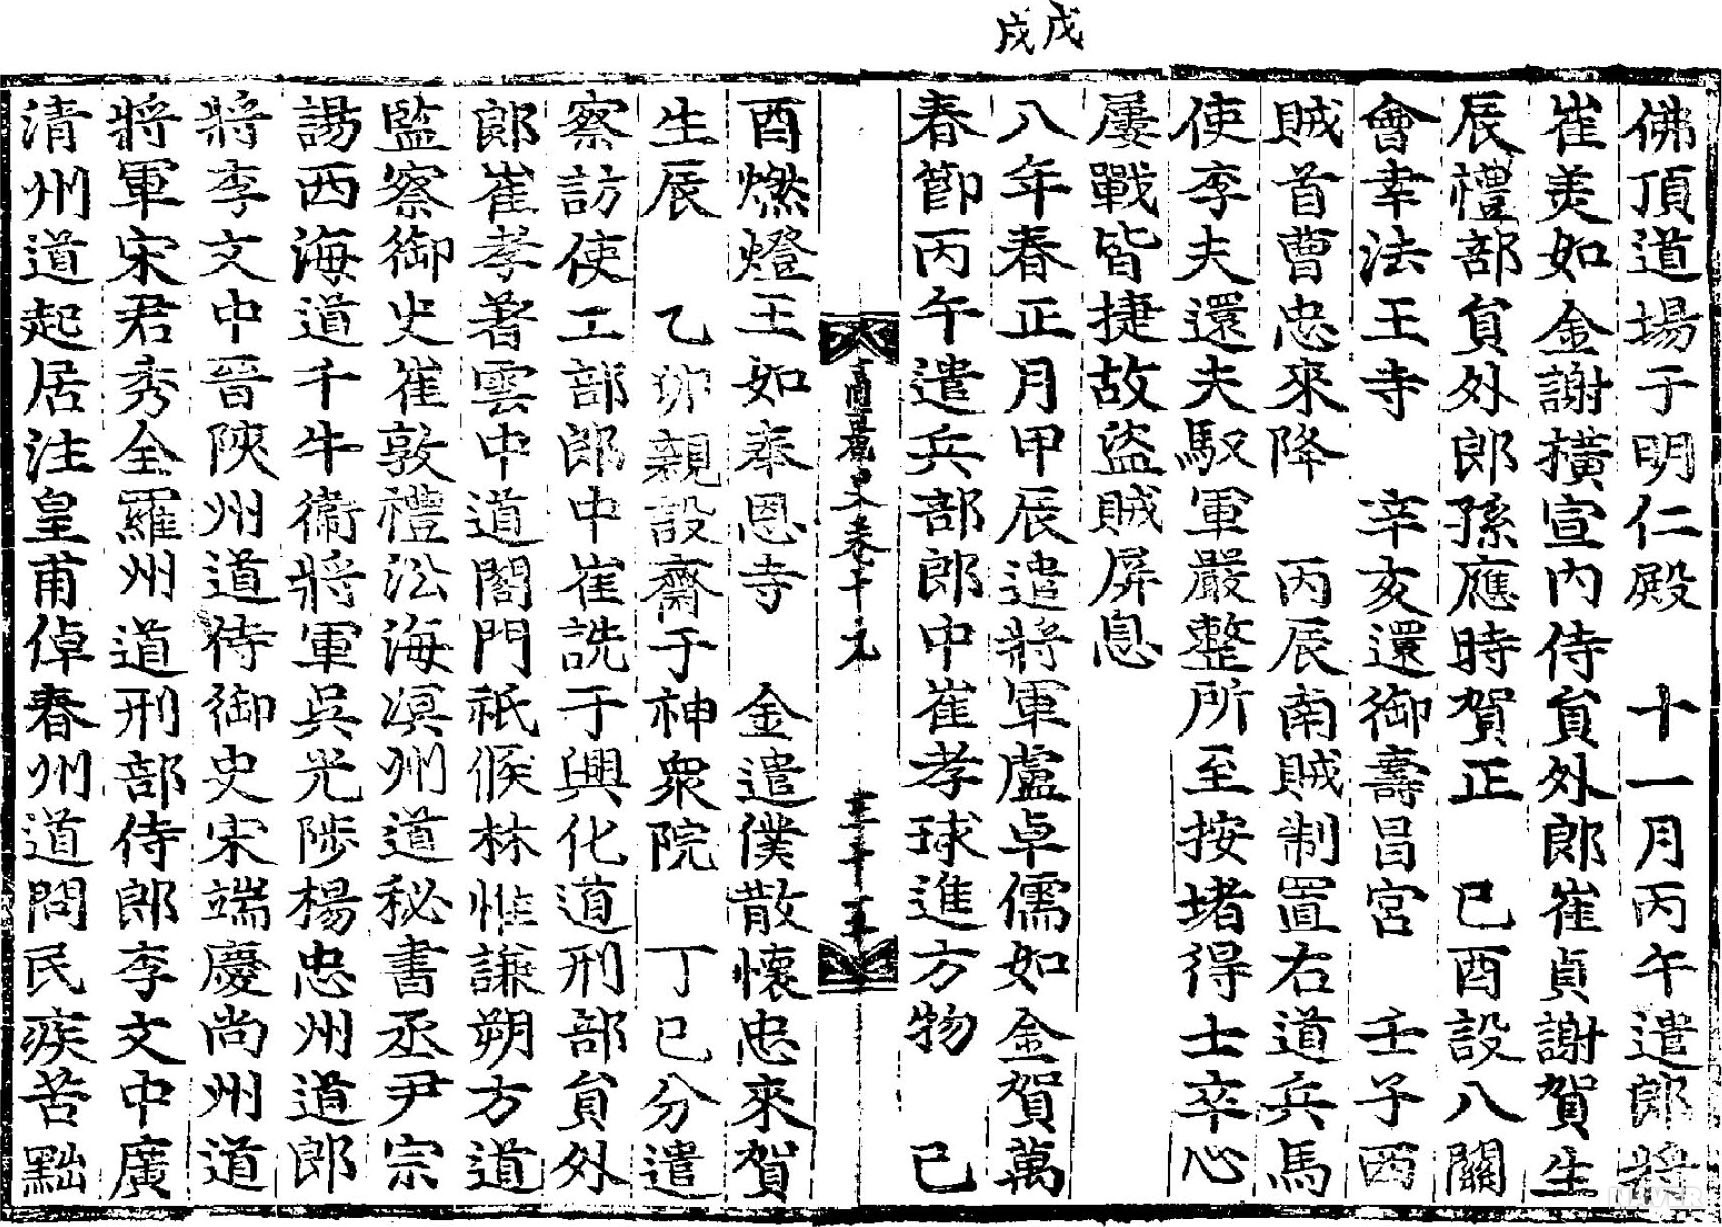 戊戌
佛頂道場于明仁殿　十一月丙午遣郎將
崔美如金謝橫宣內侍貟外郎崔貞謝賀生
辰禮部貟外郎孫應時賀正　已酉設八關
會幸法王寺　辛亥還御壽昌宮　壬子西
賊首曹忠來降　丙辰南賊制置右道兵馬
使李夫還夫馭軍嚴整所至按堵得士卒心
屢戰皆捷故盜賊屏息
八年春正月甲辰遣將軍盧卓儒如金賀萬
春節丙午遣兵部郎中崔孝球進方物　己
高麗史卷十九
酉燃燈王如奉恩寺　金遣僕散懷忠來賀
生辰　乙卯親設齋于神衆院　丁巳分遣
察訪使工部郎中崔詵于興化道刑部貟外
郎崔孝著雲中道閤門祗候林惟謙朔方道
監察御史崔敦禮沿海溟州道秘書丞尹宗
諹西海道千牛衛將軍吳光陟楊忠州道郎
將李文中晉陜州道侍御史宋端慶尚州道
將軍宋君秀全羅州道刑部侍郎李文中廣
清州道起居注皇甫倬春州道問民疾苦黜